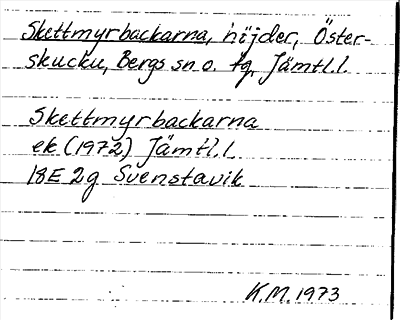 Skettmyrbackarna, höjder, Öster-
skucku, Bergs sn o. tg, Jämtl.l.
Skettmyrbackarna
ek (1972) Jämtl.l.
18E 2g Svenstavik
K.M. 1973